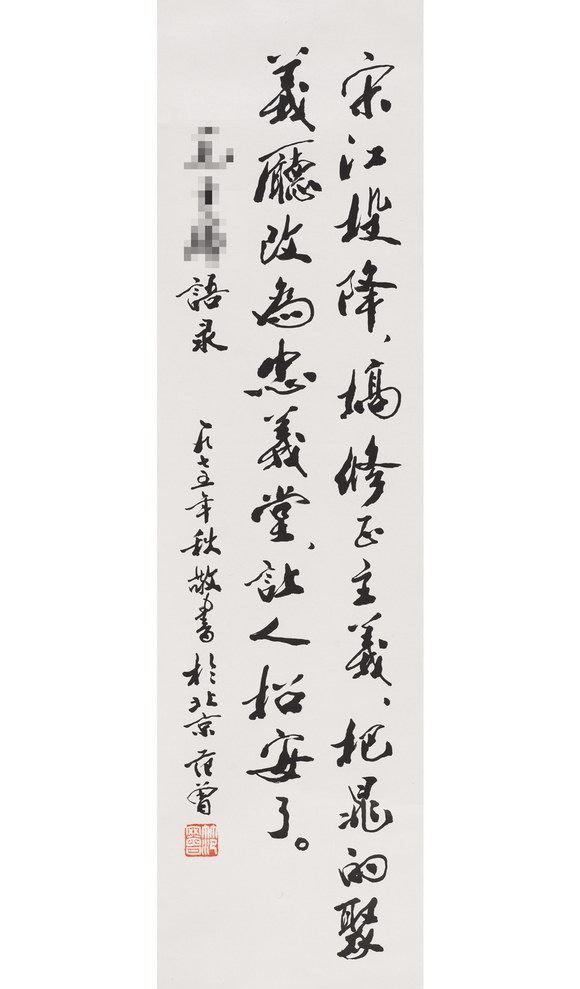 宋江投降、搞修正主義、把晁的聚
義廳改為忠義堂、让人招安了。
語录
一九七五年秋敬書於北京范曾